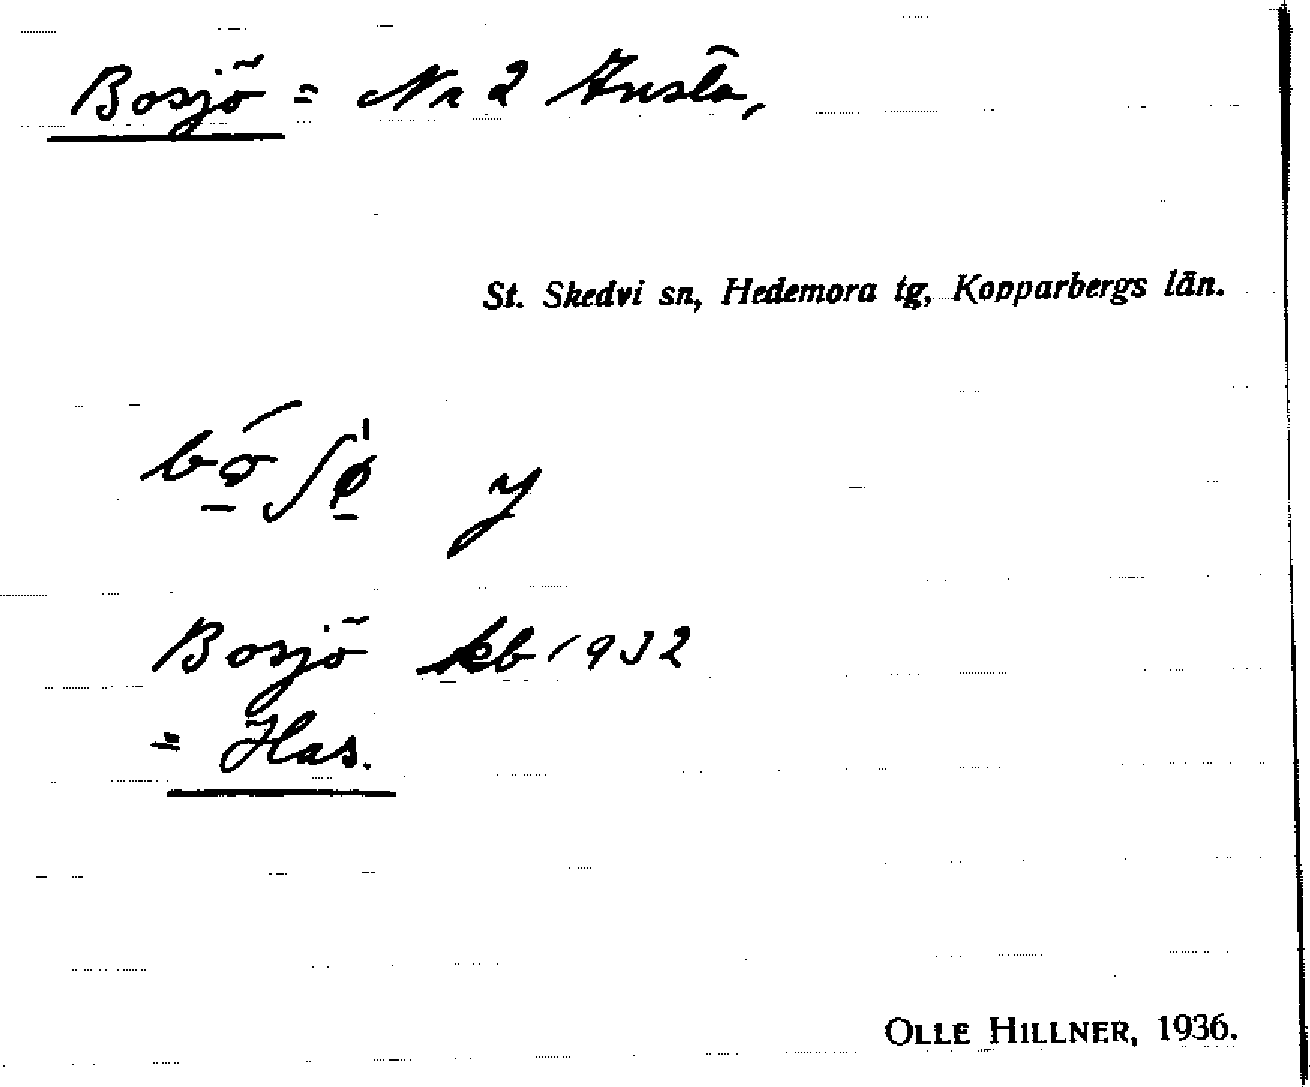 Bosjö = Nr 2 Ansta,
St. Skedvi sn, Hedemora tg, Kopparbergs län.
y
Bosjö kb 1932
= Has.
OLLE HILLNER, 1936.